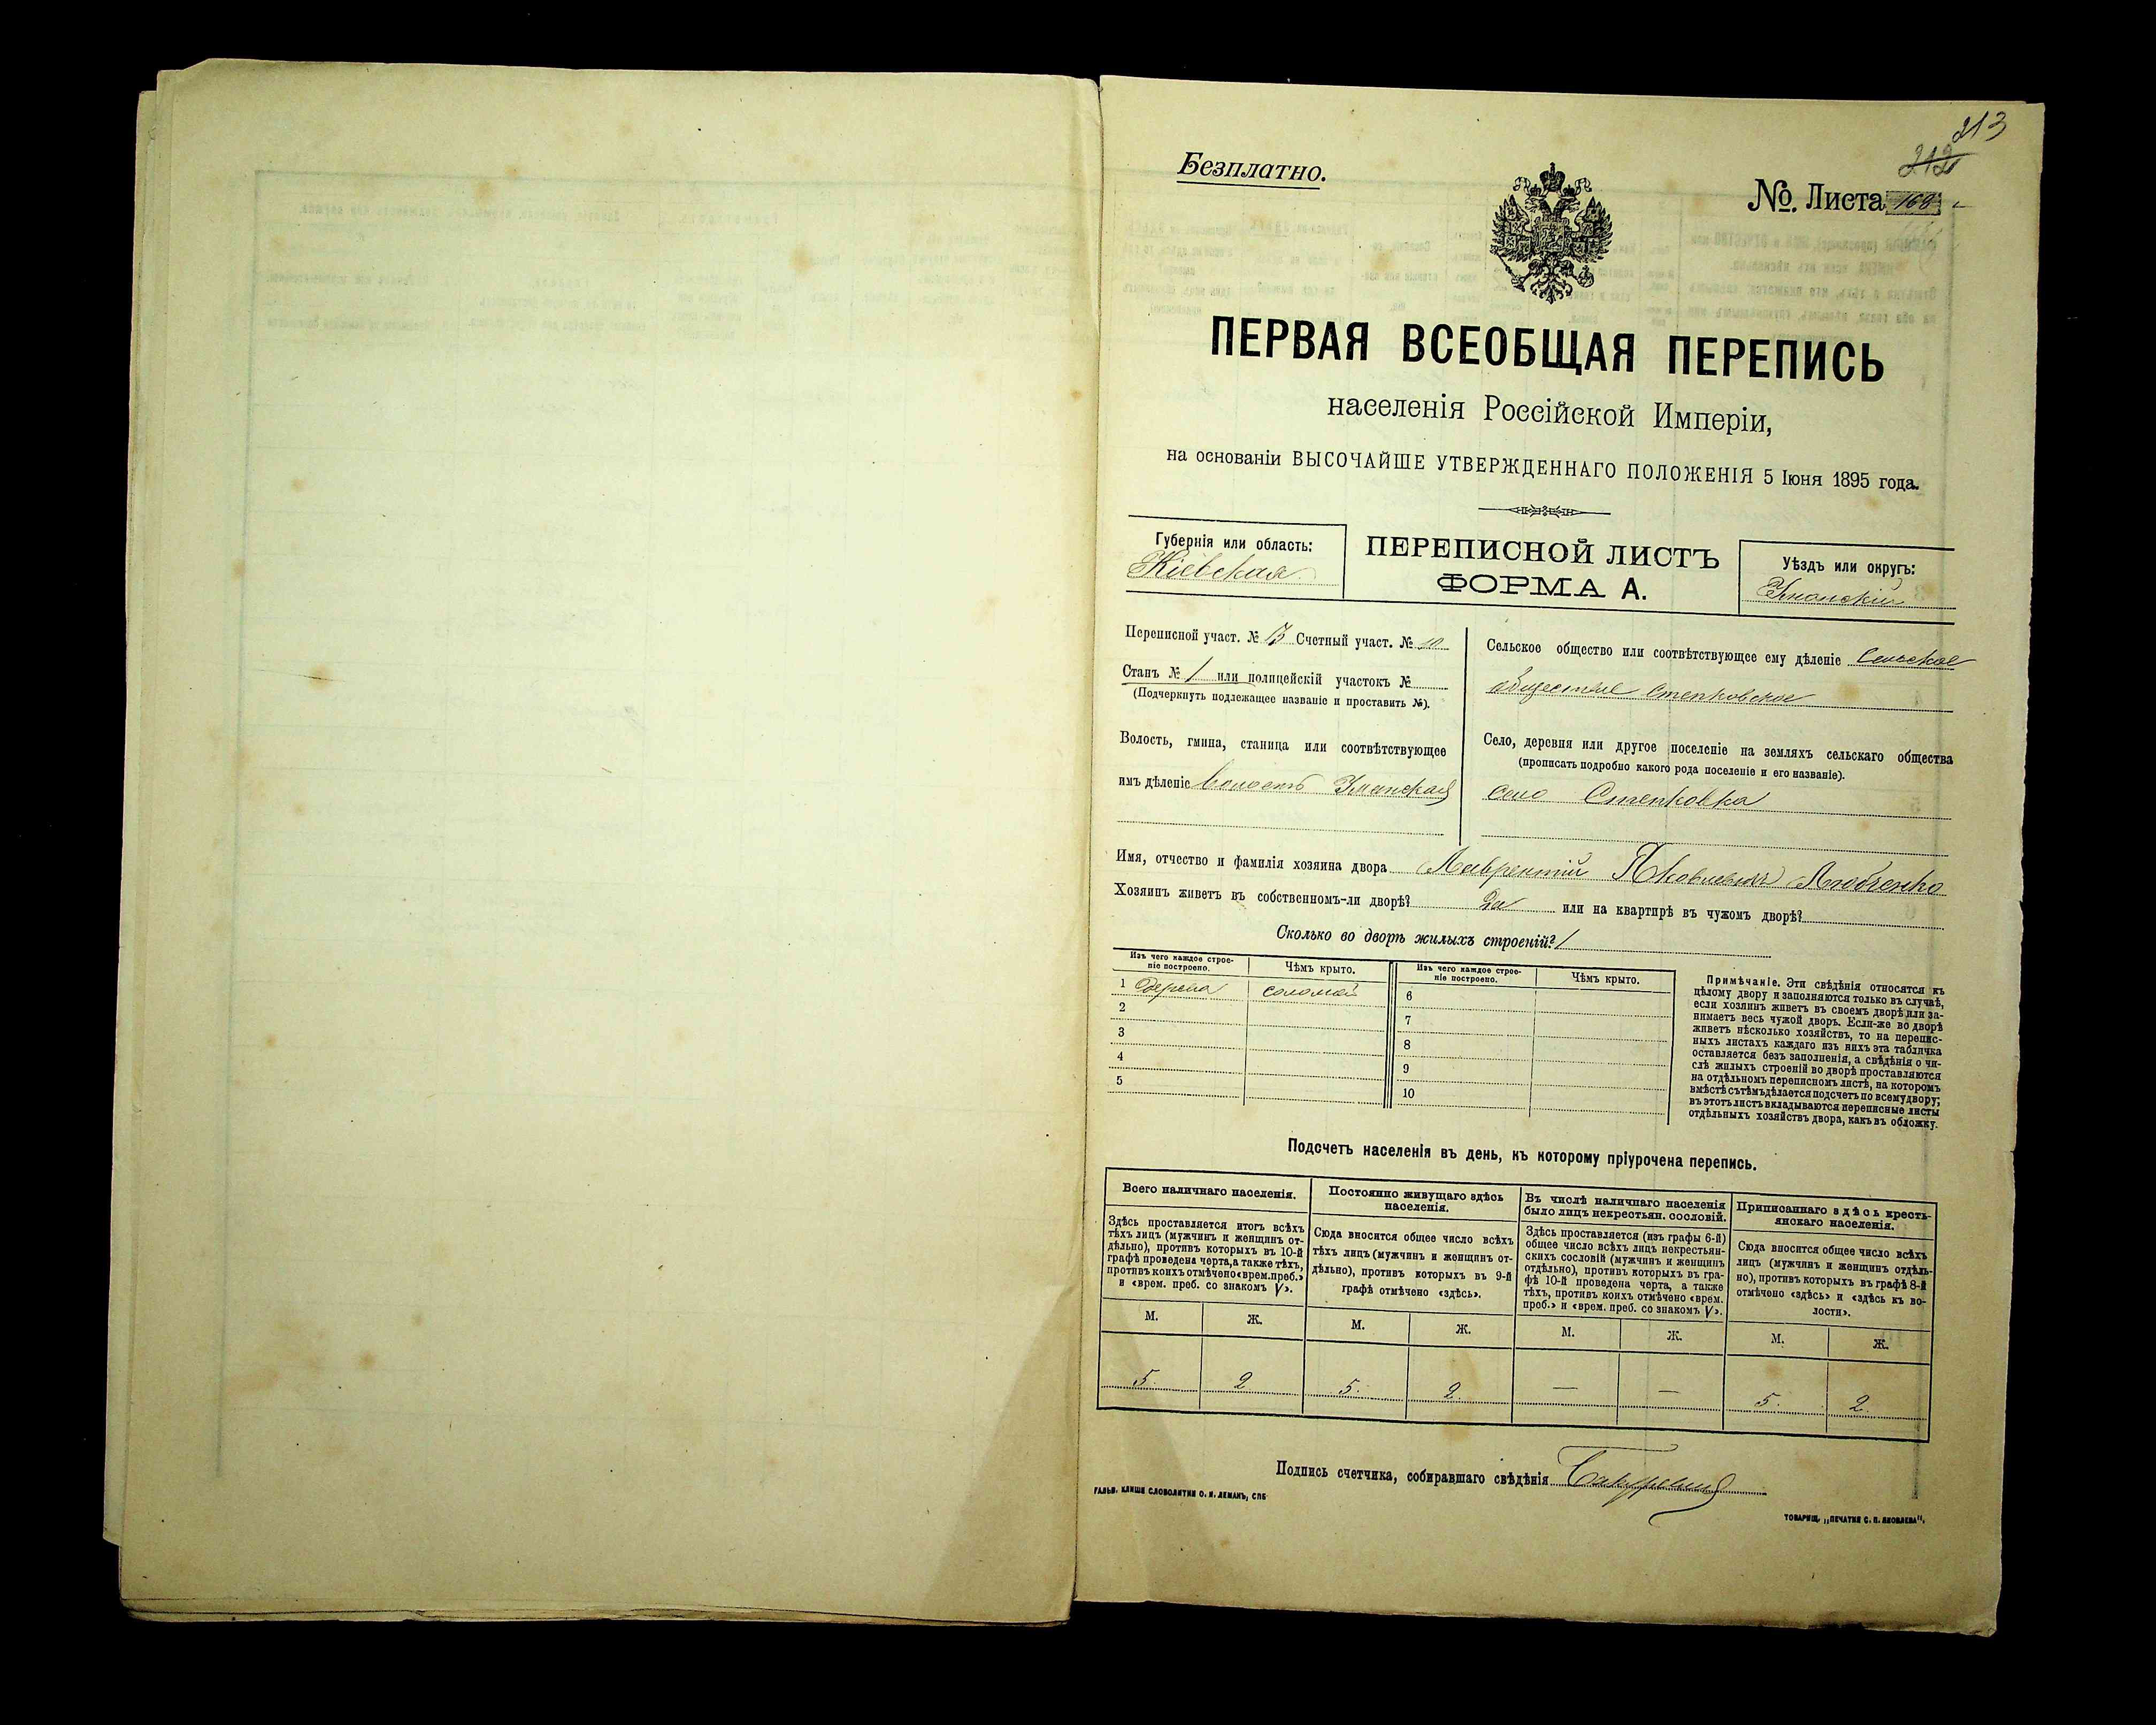 213
212
Безплатно.
№. Листа 168
ПЕРВАЯ ВСЕОБЩАЯ ПЕРЕПИСЬ
населенія Россійской Имперіи,
на основаніи ВЫСОЧАЙШЕ УТВЕРЖДЕННАГО ПОЛОЖЕНІЯ 5 Іюня 1895 года.
Губернія или область:
Кіевская
ПЕРЕПИСНОЙ ЛИСТЪ
ФОРМА А.
Уѣздъ или округъ:
Уманскій
Переписной участ. № 13 Счетный участ. № 10
Станъ № 1 или полицейскій участокъ №
(Подчеркнуть подлежащее названіе и проставить №).
Волость, гмина, станица или соотвѣтствующее
имъ дѣленіе волость Уманская
Сельское общество или соотвѣтствующее ему дѣленіе Сельское
общество Степковское
Село, деревня или другое поселеніе на земляхъ сельскаго общества
(прописать подробно какого рода поселеніе и его названіе).
село Степковка
Имя, отчество и фамилія хозяина двора Лаврентій Яковлевичъ Любченко
Хозяинъ живетъ въ собственномъ-ли дворѣ? да или на квартирѣ въ чужомъ дворѣ?
Сколько во дворѣ жилыхъ строеній? 1
Изъ чего каждое строеніе построено. Чѣмъ крыто. Изъ чего каждое строеніе построено. Чѣмъ крыто.
1 дерева соломой 6
2 7
3 8
4 9
5 10
Примѣчаніе. Эти свѣдѣнія относятся къ
цѣлому двору и заполняются только въ случаѣ,
если хозяинъ живетъ въ своемъ дворѣ или за-
нимаетъ весь чужой дворъ. Если-же во дворѣ
живетъ нѣсколько хозяйствъ, то на перепис-
ныхъ листахъ каждаго изъ нихъ эта табличка
оставляется безъ заполненія, а свѣдѣнія о чи-
слѣ жилыхъ строеній во дворѣ проставляются
на отдѣльномъ переписномъ листѣ, на которомъ
вмѣстѣ съ тѣмъ дѣлается подсчетъ по всему двору;
въ этотъ листъ вкладываются переписные листы
отдѣльныхъ хозяйствъ двора, какъ въ обложку.
Подсчетъ населенія въ день, къ которому пріурочена перепись.
Всего наличнаго населенія.
Здѣсь проставляется итогъ всѣхъ
тѣхъ лицъ (мужчинъ и женщинъ от-
дѣльно), противъ которыхъ въ 10-й
графѣ проведена черта, а также тѣхъ,
противъ коихъ отмѣчено «врем. преб.»
и «врем. преб. со знакомъ V».
Постоянно живущаго здѣсь
населенія.
Сюда вносится общее число всѣхъ
тѣхъ лицъ (мужчинъ и женщинъ от-
дѣльно), противъ которыхъ въ 9-й
графѣ отмѣчено «здѣсь».
Въ числѣ наличнаго населенія
было лицъ некрестьян. сословій.
Здѣсь проставляется (изъ графы 6-й)
общее число всѣхъ лицъ некрестьян-
скихъ сословій (мужчинъ и женщинъ
отдѣльно), противъ которыхъ въ гра-
фѣ 10-й проведена черта, а также
тѣхъ, противъ коихъ отмѣчено «врем.
преб.» и «врем. преб. со знакомъ V».
Приписаннаго здѣсь кресть-
янскаго населенія.
Сюда вносится общее число всѣхъ
лицъ (мужчинъ и женщинъ отдѣль-
но), противъ которыхъ въ графѣ 8-й
отмѣчено «здѣсь» и «здѣсь къ во-
лости».
М. Ж. М. Ж. М. Ж. М. Ж.
5. 2 5. 2. — — 5. 2.
Подпись счетчика, собиравшаго свѣдѣнія
ГАЛЬВ. КЛИШЕ СЛОВОЛИТНИ О. И. ЛЕМАНЪ, СПБ
ТОВАРИЩ. „ПЕЧАТНЯ С. П. ЯКОВЛЕВА".